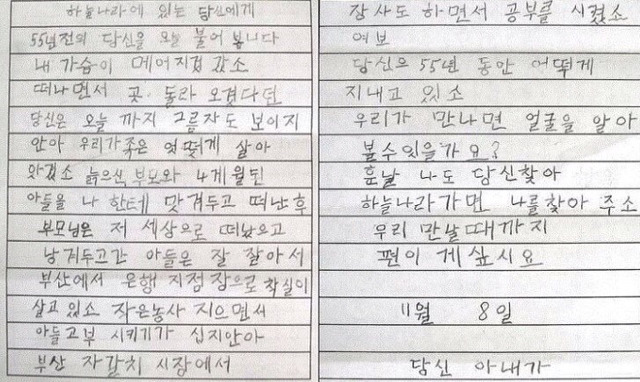 하늘나라에 있는 당신에게
55년전의 당신을 오늘 불어 봅니다
내 가슴이 메어지겄 갔소
떠나면서 곳 둘라 오겠다던
당신은 오늘 까지 그름자도 보이지
안아 우리가족은 엇떳게 살아
왔겠소 늙으신 부모와 4개월된
아들을 나 한테 맛겨두고 떠난후
부모님은 저 세상으로 떠났으고
남겨두고간 아들은 잘 잘아서
부산에서 은행 지점장으로 착실이
살고 있소 작은농사 지으면서
아들고부 시키기가 십지안아
부산 자갈치 시장에서
잠사도 하면서 공부를 시켰소
여보
당신으 55년 동안 어떻게
지내고 있소
우리가 만나면 얼굴을 알아
볼수있을가 요?
훈날 나도 당신찾아
하늘나라가면 나를찾아 주소
우리 만날때까지
편이 게싶시요
11월 8일
당신 아내가